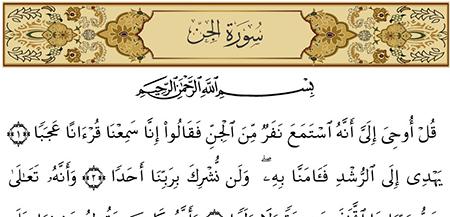 سُورَةُ الجِنّ
بِسْمِ ٱللَّهِ ٱلرَّحْمَٰنِ ٱلرَّحِيمِ
قُلْ أُوحِىَ إِلَىَّ أَنَّهُ ٱسْتَمَعَ نَفَرٌ مِّنَ ٱلْجِنِّ فَقَالُوٓا۟ إِنَّا سَمِعْنَا قُرْءَانًا عَجَبًا ﴿١﴾
يَهْدِىٓ إِلَى ٱلرُّشْدِ فَـَٔامَنَّا بِهِۦ ۖ وَلَن نُّشْرِكَ بِرَبِّنَآ أَحَدًا ﴿٢﴾ وَأَنَّهُۥ تَعَٰلَىٰ